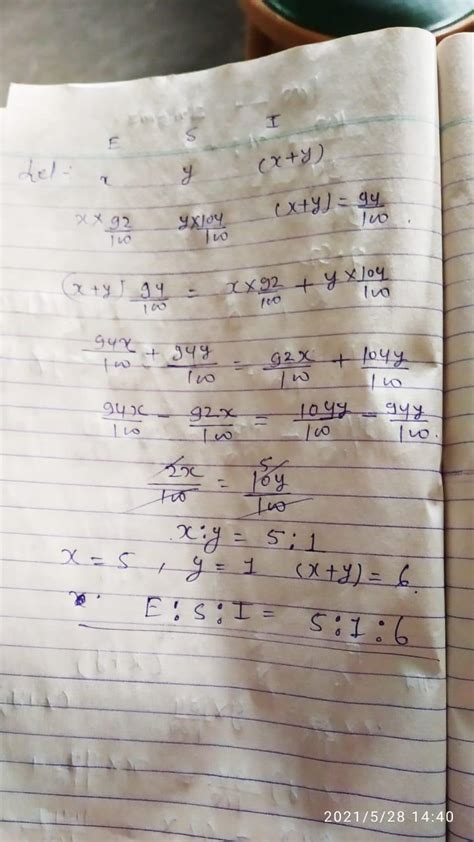 E S I
Let:- x y (x+y)
x×92/100 y×104/100 (x+y)=94/100.
(x+y) 94/100 = x×92/100 + y×104/100
94x/100 + 94y/100 = 92x/100 + 104y/100
94x/100 - 92x/100 = 104y/100 - 94y/100.
2x/100 = 5 10y/100
x:y = 5:1
x=5 , y=1 (x+y)=6.
E:S:I= 5:1:6
2021/5/28 14:40